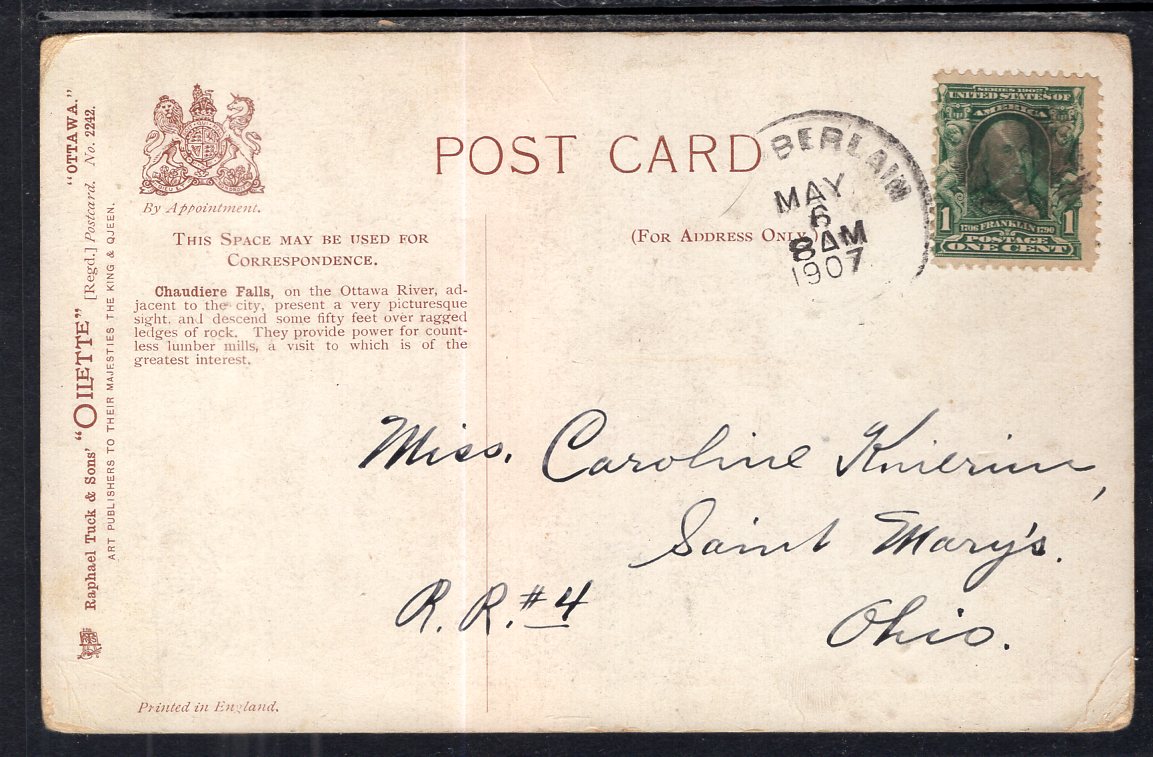 "OTTAWA."
[Regd.] Postcard. No. 2242.
Raphael Tuck & Sons' "OILETTE"
ART PUBLISHERS TO THEIR MAJESTIES THE KING & QUEEN.
By Appointment.
POST CARD
THIS SPACE MAY BE USED FOR
CORRESPONDENCE.
(FOR ADDRESS ONLY.)
Chaudiere Falls, on the Ottawa River, ad-
jacent to the city, present a very picturesque
sight, and descend some fifty feet over ragged
ledges of rock. They provide power for count-
less lumber mills, a visit to which is of the
greatest interest.
BERLAIN
MAY
6
8 AM
1907
SERIES 1902
UNITED STATES OF
AMERICA
1 1
1706 FRANKLIN 1790
POSTAGE
ONE CENT
Miss. Caroline Knierim,
Saint Mary's.
R. R. #4
Ohio.
Printed in England.